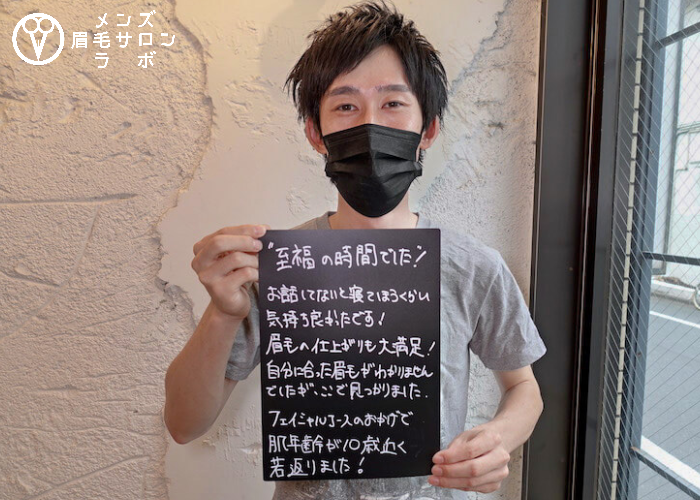 メンズ
眉毛サロン
ラボ
"至福の時間でした！
お話してないと寝てしまうくらい
気持ち良かったです！
眉毛の仕上がりも大満足！
自分に合った眉毛がわかりません
でしたが、ここで見つかりました.
フェイシャルコースのおかげで
肌年齢が10歳近く
若返りました！